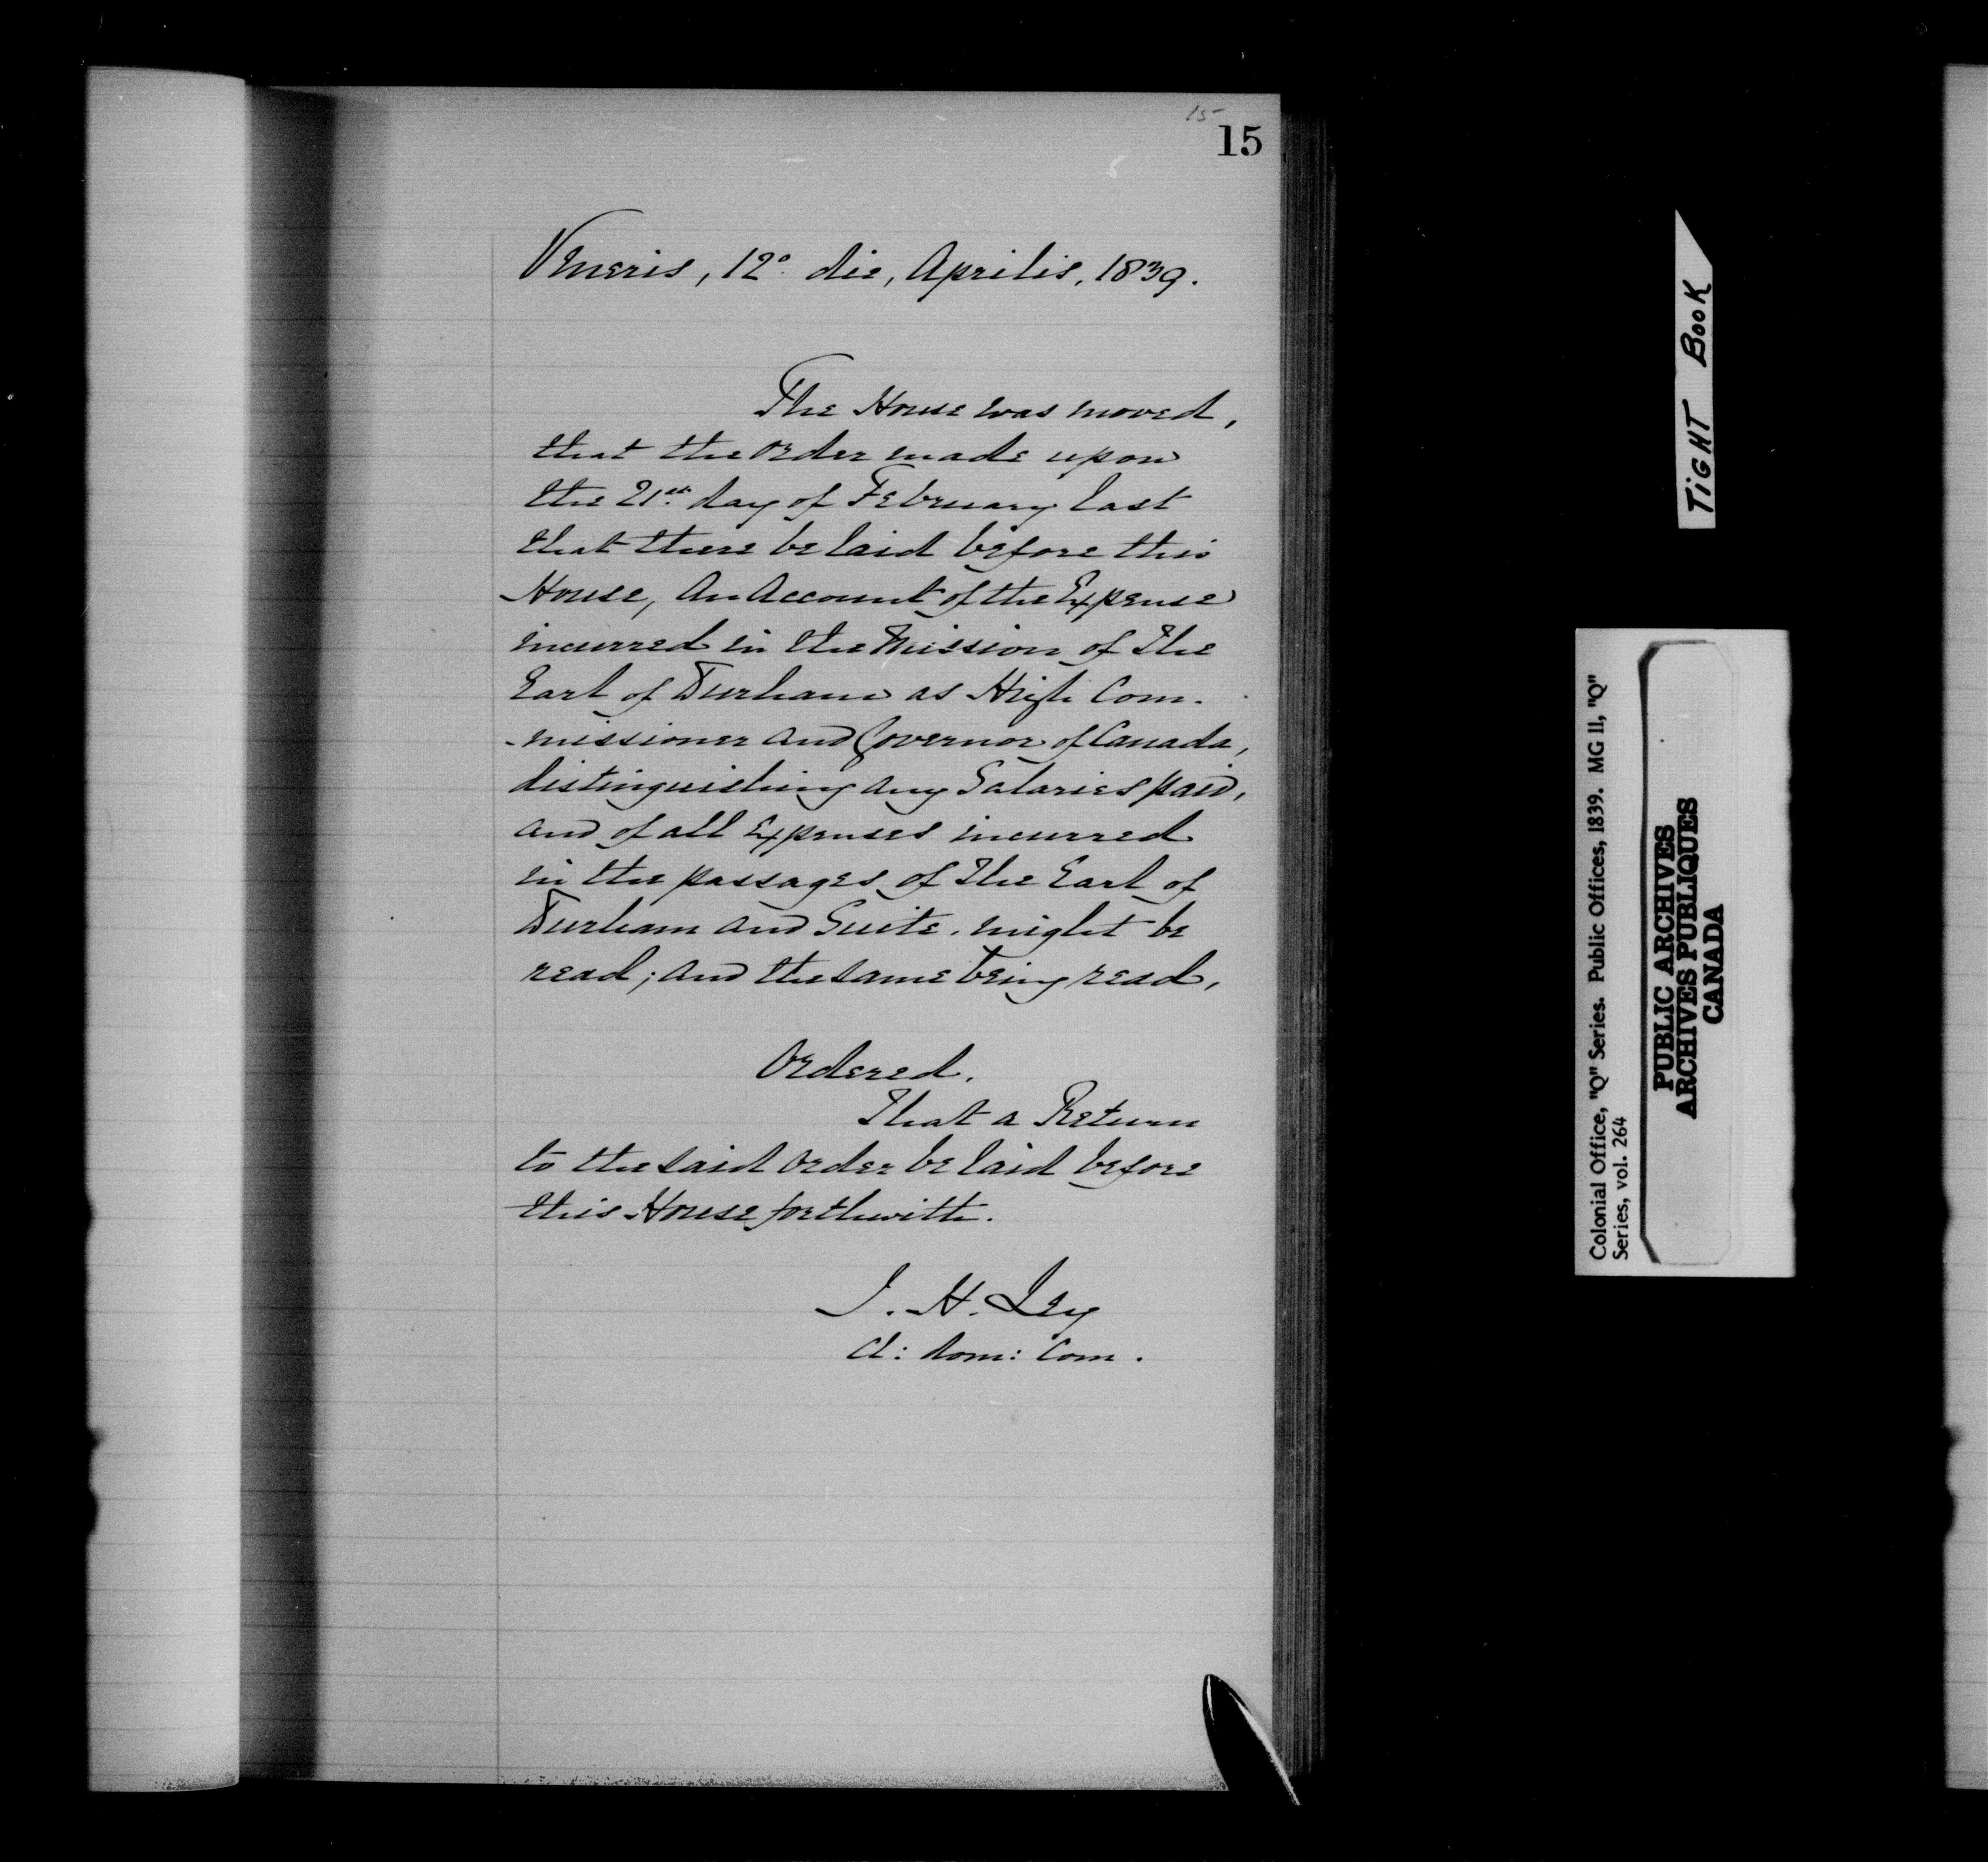 15
15
Veneris, 12° die, Aprilis, 1839.
The House was moved,
that the order made upon
the 21st day of February last
that there be laid before this
House, An Account of the Expense
incurred in the Mission of The
Earl of Durham as High Com-
-missioner and Governor of Canada,
distinguishing any Salaries paid,
and of all Expenses incurred
in the passages of The Earl of
Durham and Suite, might be
read; and the same being read,
Ordered,
That a Return
to the said Order be laid before
this House forthwith.
J. H. Ley
Cl: Dom: Com.
TIGHT BOOK
Colonial Office, "Q" Series. Public Offices, 1839. MG 11, "Q"
Series, vol. 264
PUBLIC ARCHIVES
ARCHIVES PUBLIQUES
CANADA